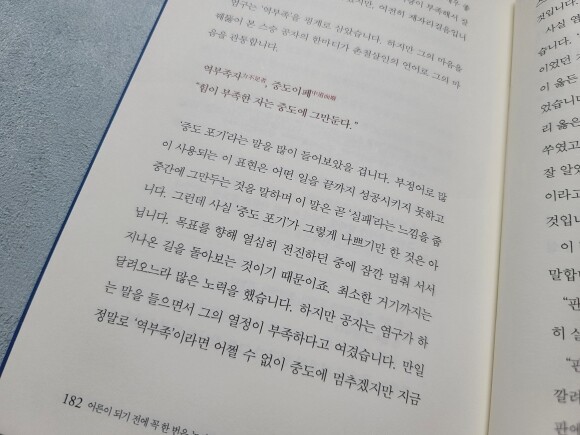 부족해서 설
하지만, 여전히 제자리걸음입니
염구는 '역부족'을 핑계로 삼았습니다. 하지만 그의 마음을
꿰뚫어 본 스승 공자의 한마디가 촌철살인의 언어로 그의 마
음을 관통합니다.
역부족자力不足者, 중도이폐中道而廢
"힘이 부족한 자는 중도에 그만둔다."
'중도 포기'라는 말을 많이 들어보았을 겁니다. 부정어로 많
이 사용되는 이 표현은 어떤 일을 끝까지 성공시키지 못하고
중간에 그만두는 것을 말하며 이 말은 곧 '실패'라는 느낌을 줍
니다. 그런데 사실 '중도 포기'가 그렇게 나쁘기만 한 것은 아
닙니다. 목표를 향해 열심히 전진하던 중에 잠깐 멈춰 서서
지나온 길을 돌아보는 것이기 때문이죠. 최소한 거기까지는
달려오느라 많은 노력을 했습니다. 하지만 공자는 염구가 하
는 말을 들으면서 그의 열정이 부족하다고 여겼습니다. 만일
정말로 '역부족'이라면 어쩔 수 없이 중도에 멈추겠지만 지금
182 어른이 되기 전에 꼭 한 번은
것입니다.
사실 염
습니다. '
이었던 것
이 옳은
었습니다
리 옳은
쑤였고
잘 알았
이라고
것입니
이
말합
"판
히 실
"
깔려
판에